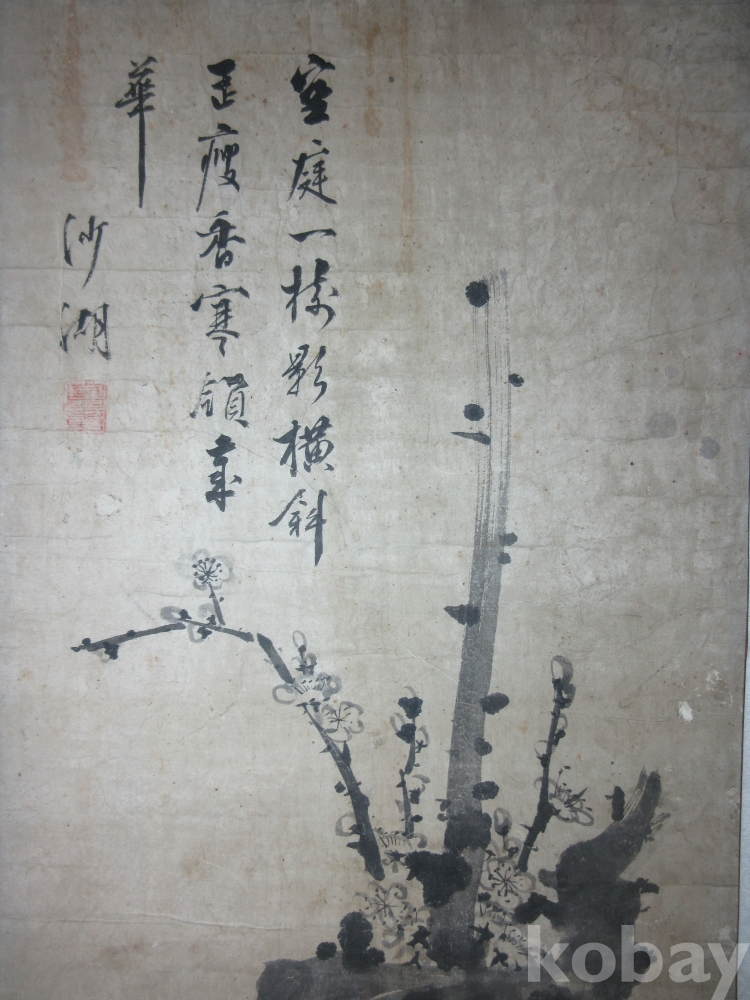 空庭一樹影橫斜
玉瘦香寒領歲
華
沙湖
kobay